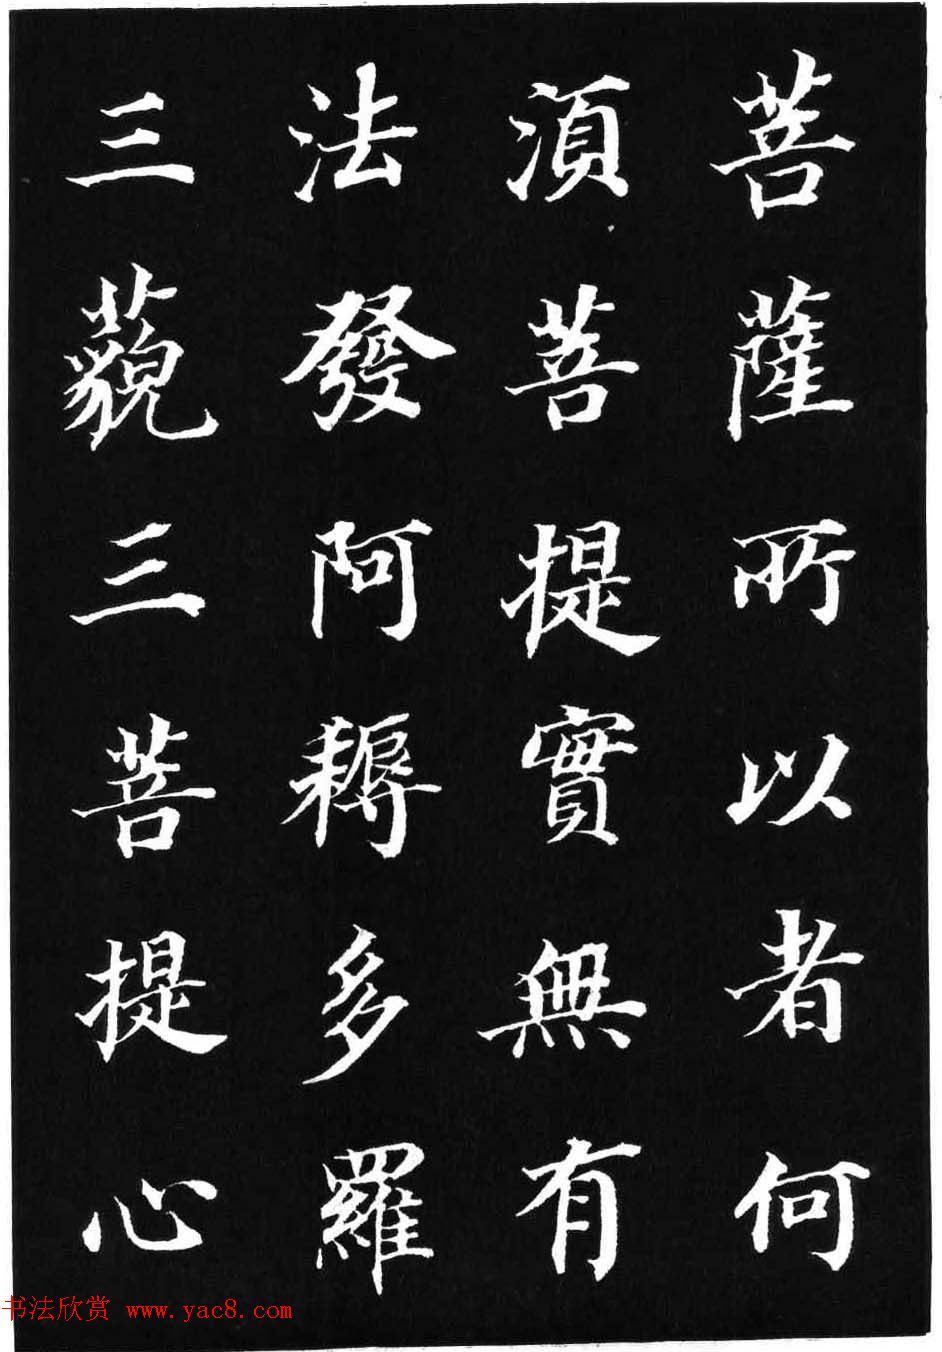 菩薩所以者何
湏菩提實無有
法發阿耨多羅
三藐三菩提心
书法欣赏 www.yac8.com